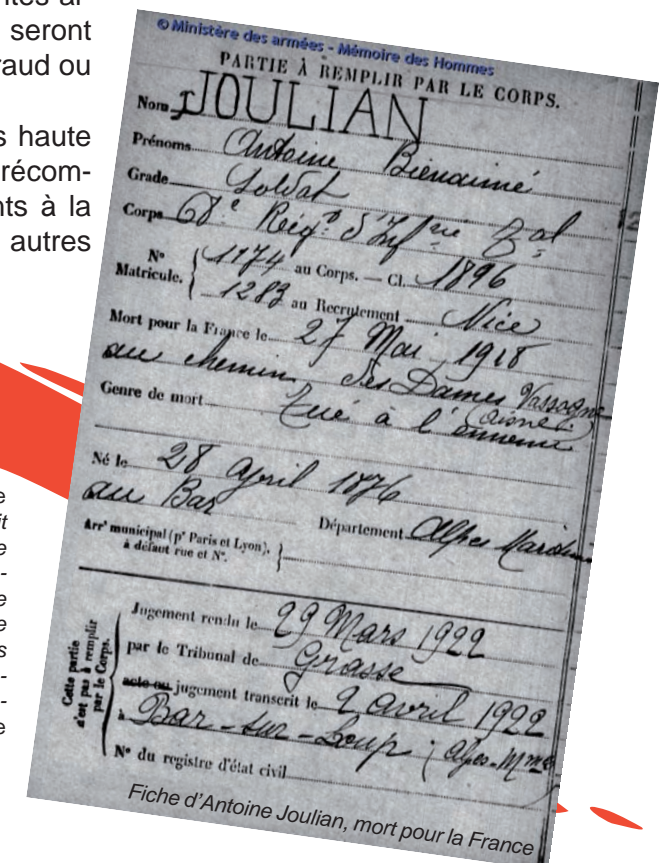 ntes ar-
seront
raud ou
s haute
récom-
nts à la
autres
e
it
e
-
e
e
s
-
-
e
© Ministère des armées - Mémoire des Hommes
PARTIE À REMPLIR PAR LE CORPS.
Nom JOULIAN
Prénoms Antoine Bienaimé
Grade Soldat
Corps 68e Régt d'Infrie Tal
No Matricule. { 1174 au Corps. — Cl. 1896
1283 au Recrutement Nice
Mort pour la France le 27 Mai 1918
au chemin des Dames Vassogne
(Aisne)
Genre de mort Tué à l'ennemi
Né le 28 April 1876
au Bar Département Alpes Maritimes
Arrt municipal (pr Paris et Lyon), à défaut rue et No. }
Cette partie n'est pas à remplir par le Corps.
Jugement rendu le 29 Mars 1922
par le Tribunal de Grasse
acte ou jugement transcrit le 2 avril 1922
à Bar-sur-Loup (Alpes-Mmes
No du registre d'état civil
Fiche d'Antoine Joulian, mort pour la France